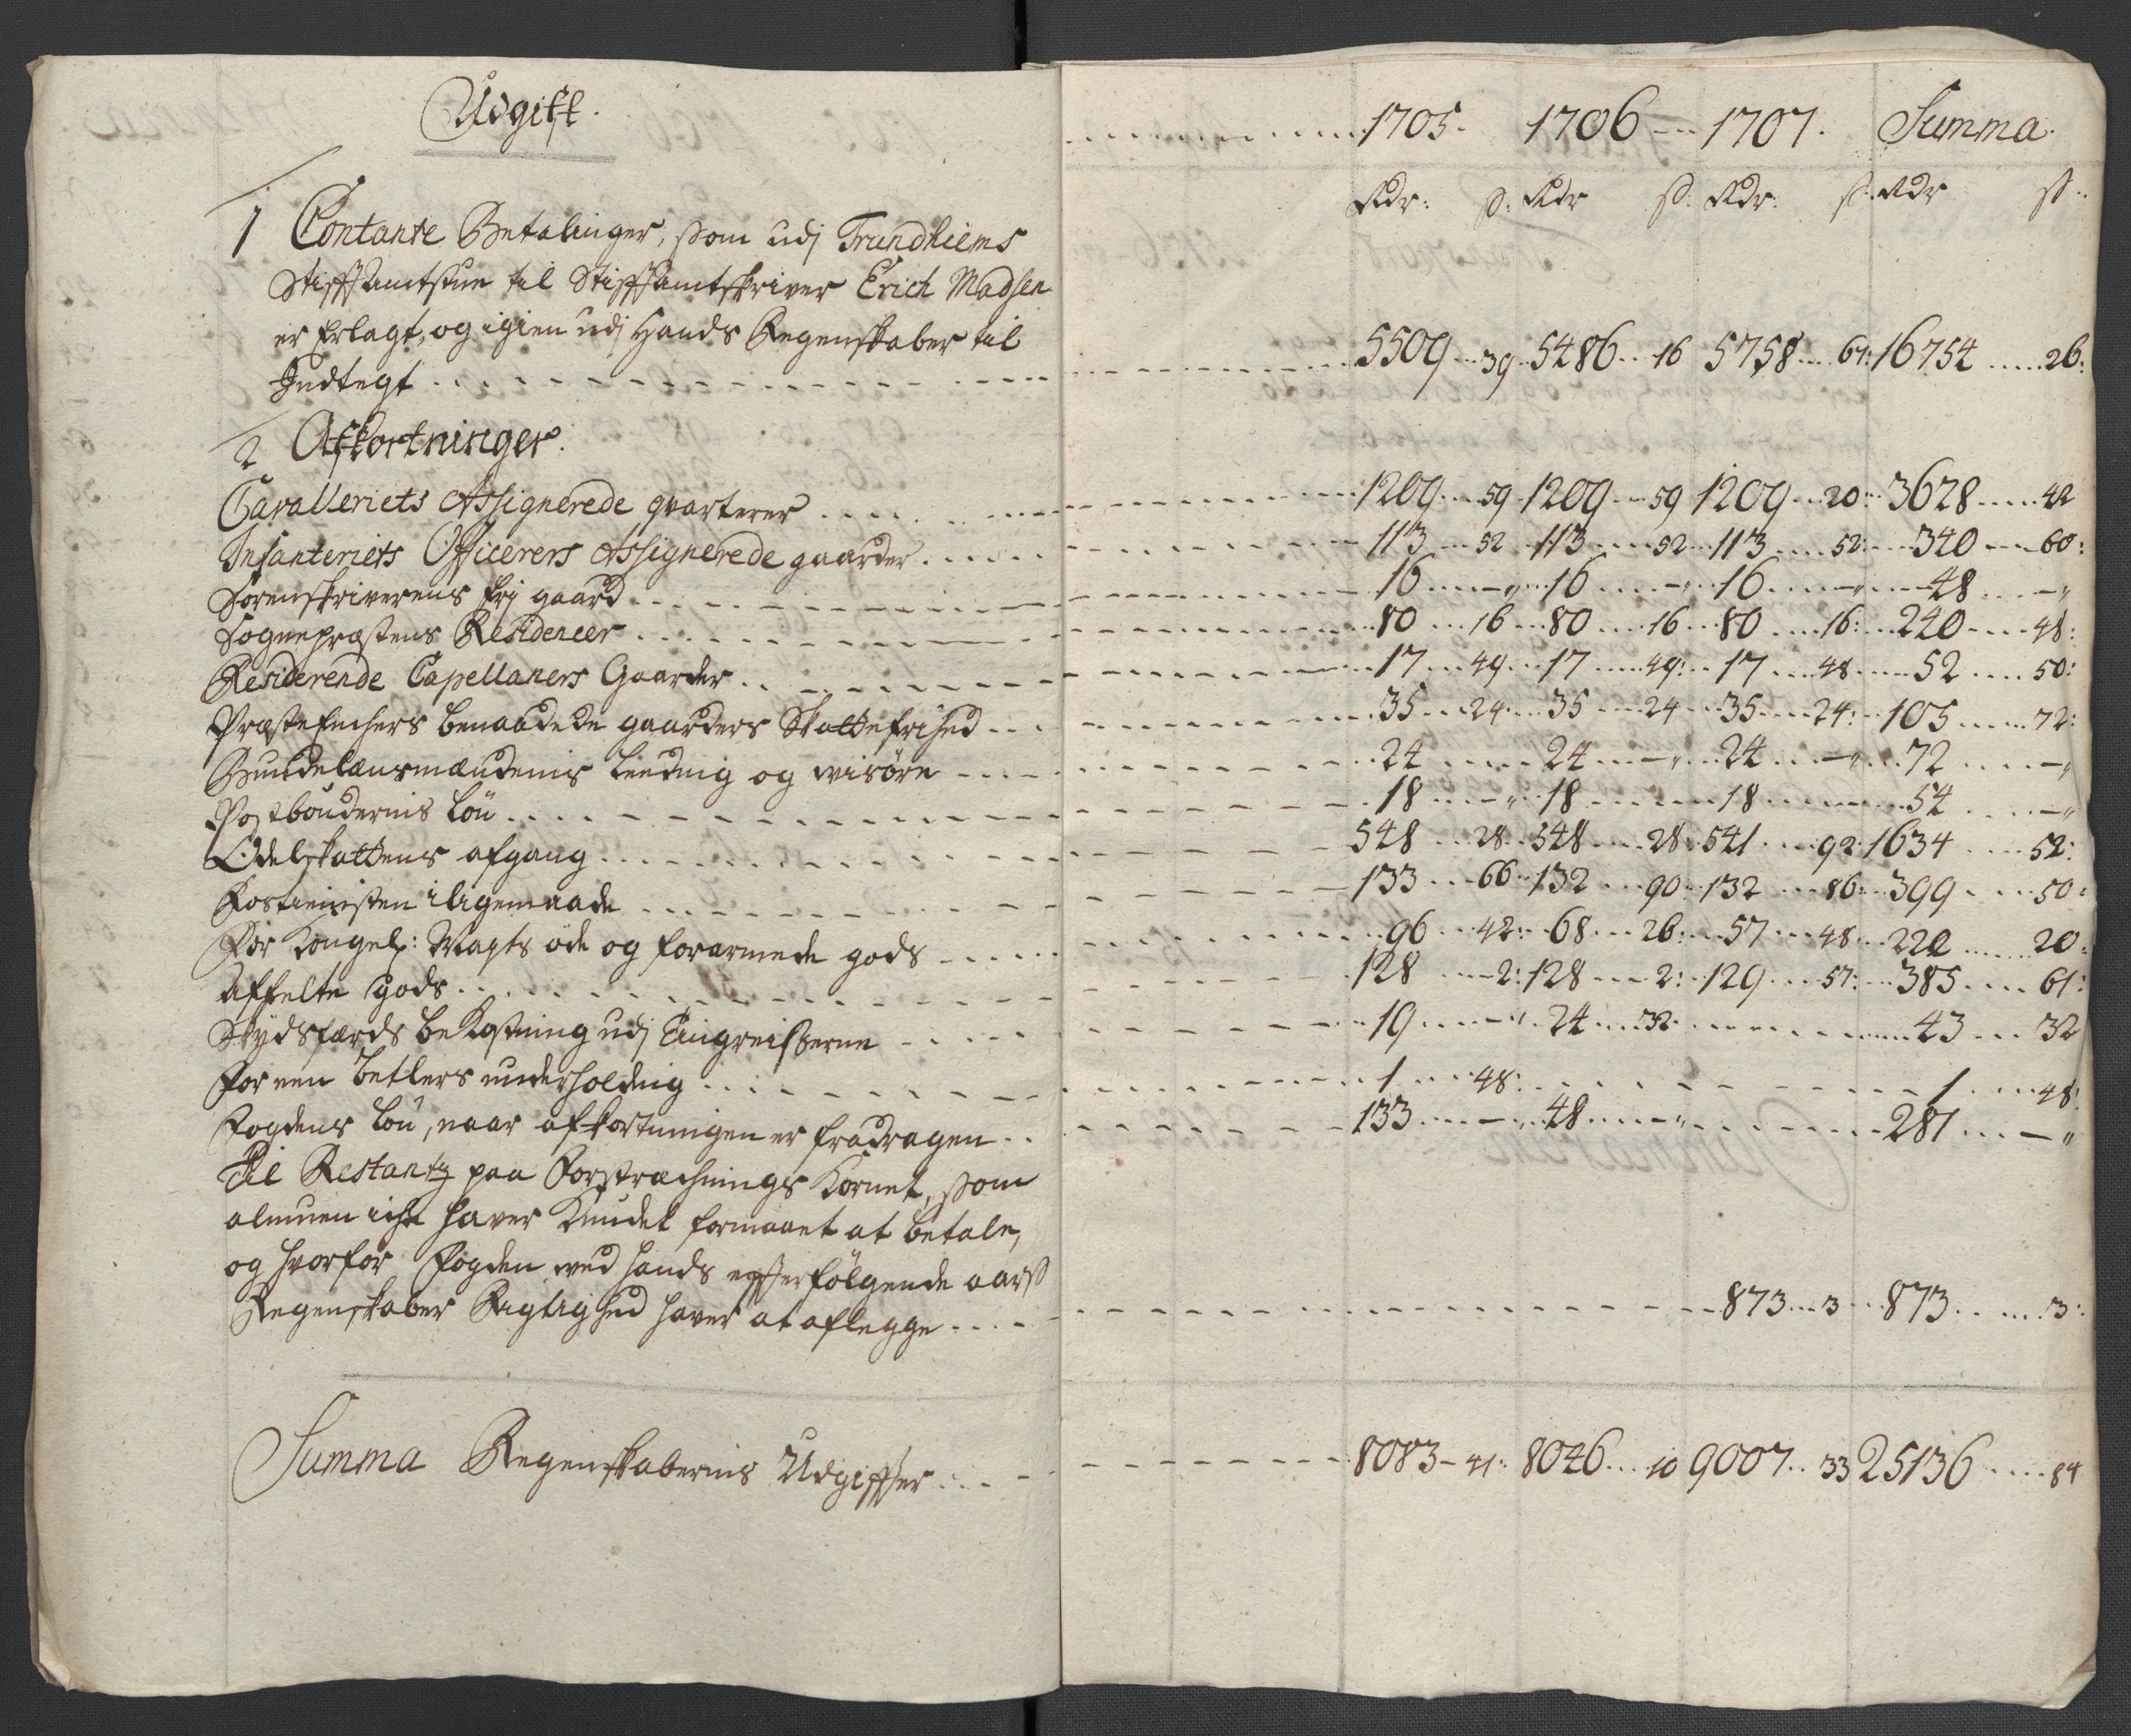 Udgift.
1705. 1706 1707. Summa.
Rdr: ß: Rdr ß: Rdr: ß: Rdr ß:
1 Contante Betalinger, som udj Trundhiems
Stifftamtstue til Stifftamtskriver Erich Madsen
er Erlagt, og igien udj Hands Regenskaber til
Indtegt 5509 39 5486 16 5758 67: 16754 26:
2 Afkortninger.
Cavalleriets Assignerede qvarterer 1209 59 1209 59 1209 20: 3628 42
Infanteriets Officerers Assignerede gaarder 113 52 113 52 113 52: 340 60:
Sorenskriverens frj gaard 16 " 16 " 16 " 48 "
Sognepræstens Residencer 80 16 80 16 80 16: 240 48:
Residerende Capellaners Gaarder 17 49 17 49: 17 48 52 50:
Præsteenchers benaadede gaarders Skattefrihed 35 24 35 24 35 24: 105 72:
Bundelænsmændenis leednig og wisøre 24 24 " 24 " 72 "
Postbøndernis løn 18 " 18 18 54 "
Odelskattens afgang 548 28 548 28 541 92 1634 52:
Fosteenisten iligemaade 133 66 132 90 132 86: 399 50:
For Kongel: Mayts øde og forarmede gods 96 42: 68 26: 57 48 222 20:
Affelte gods 128 2: 128 2: 129 57: 385 61:
Skydsfærds bekostning udj 19 " 24 32 43 32
For een betlers underholdnig 1 48: 1 48:
Fogdens løn, naar afkortningen er fradragen 133 " 48 " 281 "
Restantz paa Forstræchnings Kornet, som
almuen iche haver kundet formaaet at betale,
og hvorfor Fogden med hands effterfølgende aarß
Regenskaber Rigtighed haver at aflegge 873 3 873 3:
Summa Regenskabernis Udgiffter 8083 41: 8046 10 9007 33 25136 84